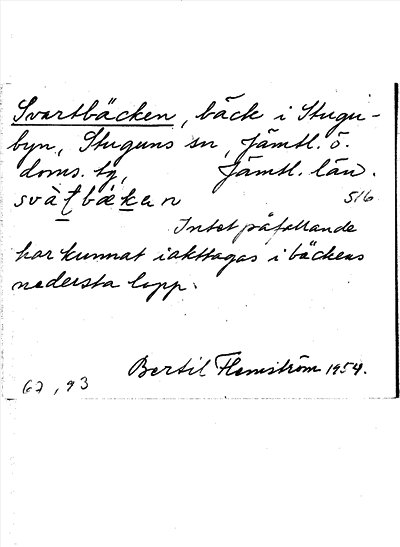 Svartbäcken, bäck i Stugu-
byn, Stuguns sn, Jämtl. ö.
doms. tg, Jämtl. län.
svàʈbækan 516
Intet påfallande
har kunnat iakttagas i bäckens
nedersta lopp.
Bertil Flemström 1954.
62, 93